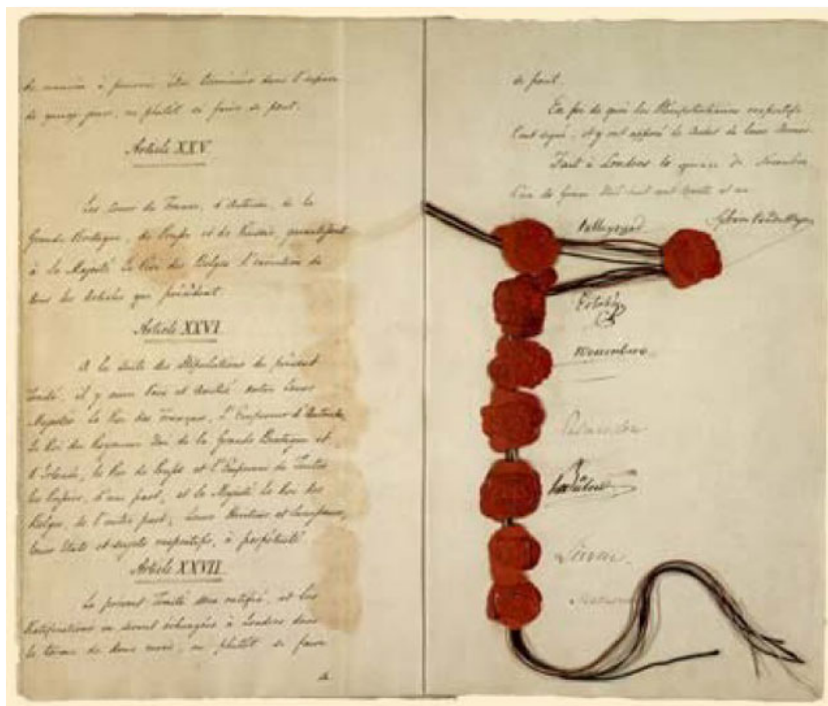 de manière à pouvoir être terminées dans l'espace
de quinze jours, ou plutôt si faire se peut.
Article XXV.
Les Cours de France, d'Autriche, de la
Grande Bretagne, de Prusse et de Russie, garantissent
à Sa Majesté le Roi des Belges l'exécution de
tous les Articles qui précèdent.
Article XXVI.
A la suite des Stipulations du présent
Traité, il y aura Paix et Amitié entre Leurs
Majestés le Roi des Français, l'Empereur d'Autriche,
le Roi du Royaume Uni de la Grande Bretagne et
d'Irlande, le Roi de Prusse et l'Empereur de Toutes
les Russies, d'une part, et Sa Majesté le Roi des
Belges, de l'autre part, Leurs Héritiers et Successeurs,
leurs Etats et sujets respectifs, à perpétuité.
Article XXVII.
Le présent Traité sera ratifié, et les
Ratifications en seront échangées à Londres dans
le terme de deux mois, ou plutôt si faire
se
se peut.
En foi de quoi les Plénipotentiaires respectifs
l'ont signé, et y ont apposé le Cachet de leurs Armes.
Fait à Londres le quinze de Novembre,
l'an de Grace Mil huit cent trente et un.
Sylvain Van de Weyer
Talleyrand
Esterhazy
Wessenberg
Palmerston
Bülow
Lieven